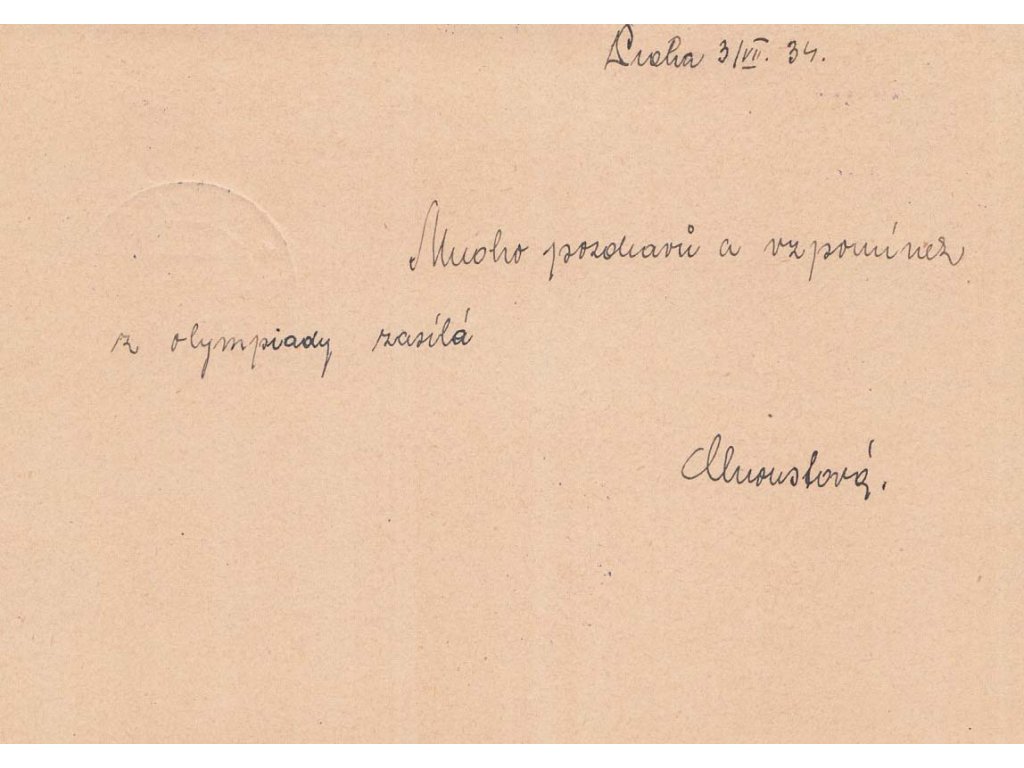 Praha 3/VII. 34.
Mnoho pozdravů a vzpomínek
z olympiady zasílá